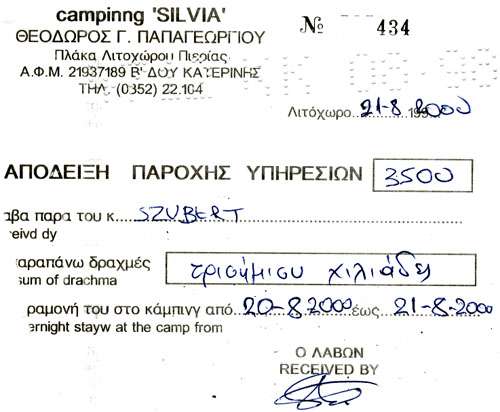 campinng 'SILVIA'
ΘΕΟΔΩΡΟΣ Γ. ΠΑΠΑΓΕΩΡΓΙΟΥ
Πλάκα Λιτοχώρου Πιερίας
Α.Φ.Μ. 21937189 Β' ΔΟΥ ΚΑΤΕΡΙΝΗΣ
ΤΗΛ. (0352) 22.104
№ 434
Λιτόχωρο 21-8 2000
ΑΠΟΔΕΙΞΗ ΠΑΡΟΧΗΣ ΥΠΗΡΕΣΙΩΝ 3500
αβα παρα του κ. SZUBERT
eivd dy
αραπάνω δραχμές τρισήμισυ χιλιάδες
sum of drachma
ραμονή του στο κάμπινγ από 20-8-2000 έως 21-8-2000
ernight stayw at the camp from
Ο ΛΑΒΩΝ
RECEIVED BY